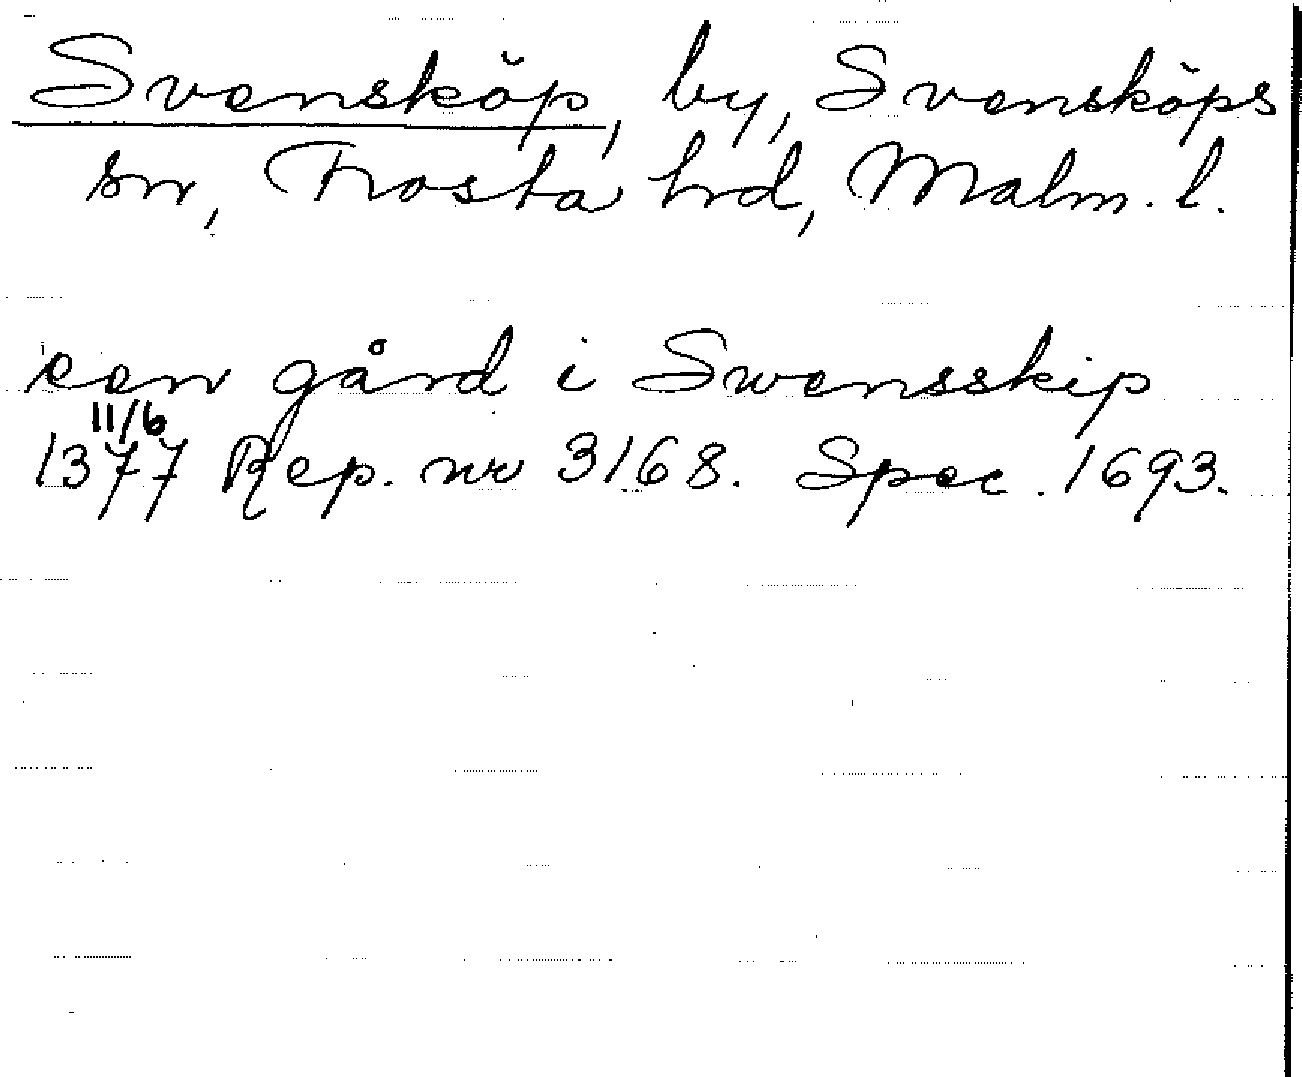 Svensköp, by, Svensköps
sn, Frosta hrd, Malm. l.
een gård i Swensskip
11/6
1377 Rep. nr 3168. Spec. 1693.